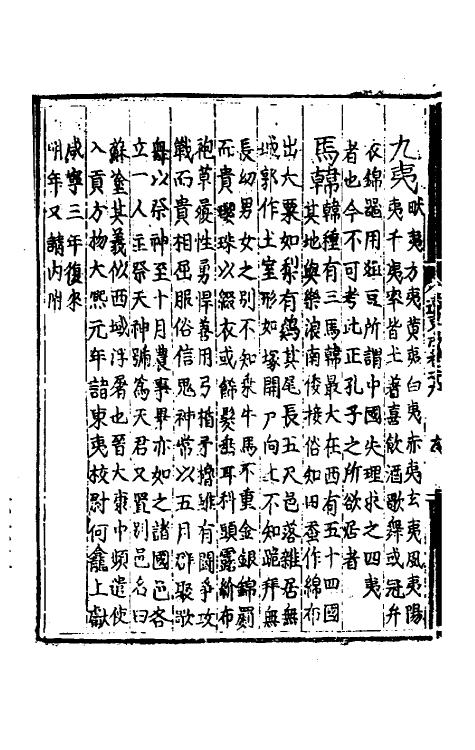 九夷畎夷方夷黄夷白夷赤夷玄夷風夷陽
夷千夷率皆土著喜飲酒歌舞或冠弁
衣錦器用俎豆所謂中國失理求之四夷
者也今不可考此正孔子之所欲居者
馬韓韓種有三馬韓最大在西有五十四國
其地與樂浪南倭接俗知田蚕作綿布
出大栗如梨有鷄其尾長五尺邑落雜居無
城郭作土室形如塚開戶向上不知跪拜無
長幼男女之別不知乘牛馬不重金銀錦罽
而貴瓔珠以綴衣或餙髮垂耳科頭露紒布
袍草履性勇悍善用弓楯矛櫓雖有鬪爭攻
戰而貴相屈服俗信鬼神常以五月群聚歌
舞以祭神至十月農事畢亦如之諸國邑各
立一人主祭天神號為天君又置別邑名曰
蘇塗其義似西域浮屠也晉太康中頻遣使
入貢方物大熙元年詣東夷校尉何龕上獻
咸寧三年復來
明年又請內附